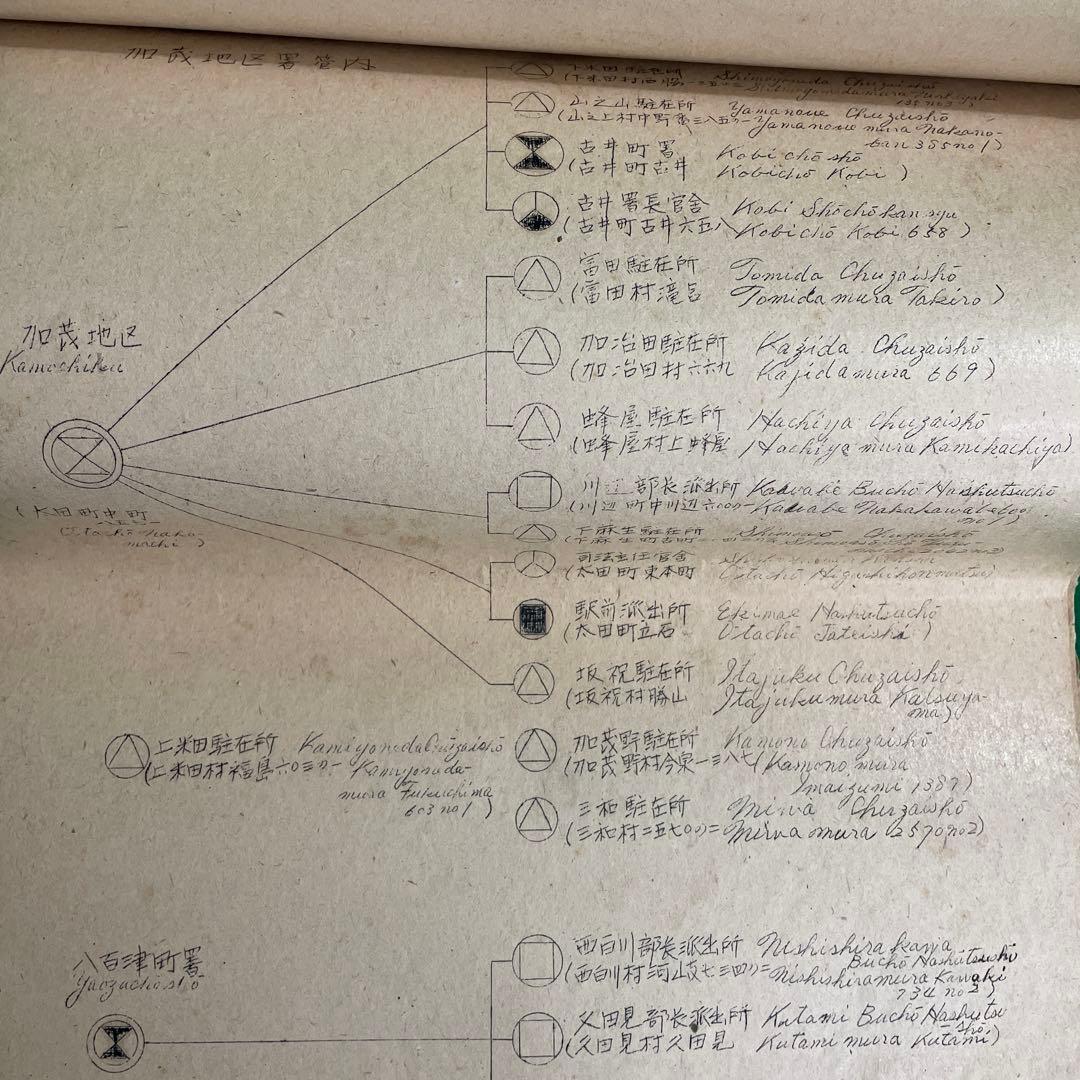 加茂地区署管内
下米田駐在所 Shimoyoneda Chuzaishō
山之上駐在所 Yamanoue Chuzaishō
(山之上村中野番三八五ノ一 Yamanoue mura Nakano-
ban 385 no 1)
古井町署 Kobi chō shō
(古井町古井 Kobichō Kobi)
古井署長官舎 Kobi Shōchōkansya
(古井町古井六五八 Kobichō Kobi 658)
富田駐在所 Tomida Chuzaishō
(富田村滝呂 Tomida mura Takiro)
加茂地区
Kamochiku
加治田駐在所 Kajida Chuzaishō
(加治田村六六九 Kajidamura 669)
蜂屋駐在所 Hachiya Chuzaishō
(蜂屋村上蜂屋 Hachiya mura Kamihachiya)
川辺部長派出所 Kawabe Buchō Hashutsuchō
(川辺町中川辺六〇〇ノ一 Kawabe Nakakawabe 600
no 1)
(太田町中町
Ōtachō Naka-
machi)
下麻生駐在所 Chuzaishō
司法主任官舎
(太田町東本町 Ōtachō Higashihonmatsu)
駅前派出所 Ekimae Hashutsuchō
(太田町立石 Ōtachō Tateishi)
坂祝駐在所 Itajuku Chuzaishō
(坂祝村勝山 Itajukumura Katsuya-
ma)
上米田駐在所 Kamiyoneda Chūzaishō
(上米田村福島六〇三ノ一 Kamiyoneda-
mura Fukuchima
603 no 1)
加茂野駐在所 Kamono Chuzaishō
(加茂野村今泉一三八七 (Kamono mura
Imaizumi 1387)
三和駐在所 Miwa Chuzaishō
(三和村二五七〇ノ二 Miwa mura 2570 no 2)
八百津町署
Yaozuchō shō
西白川部長派出所 Nishishirakawa
Buchō Hashutsushō
(西白川村河岐七三四ノ二 Nishishiramura Kawaki
734 no 2)
久田見部長派出所 Kutami Buchō Hashutsu
shō
(久田見村久田見 Kutami mura Kutami)